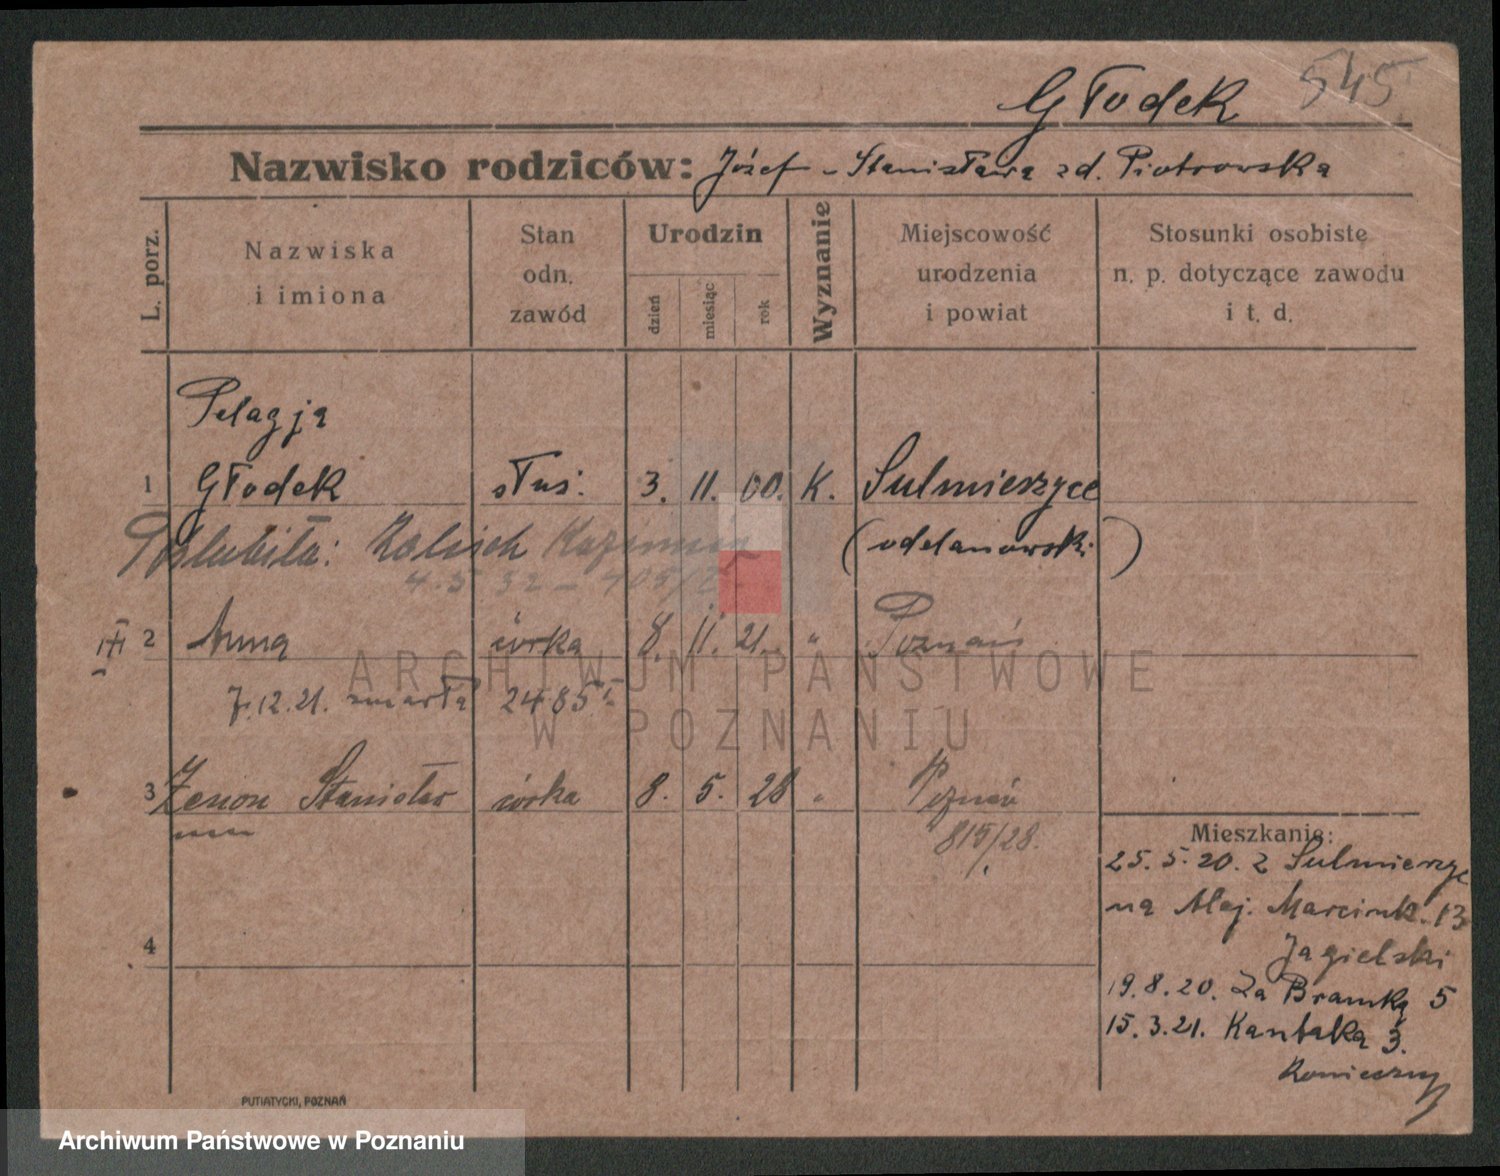 545
Głodek
Nazwisko rodziców: Józef - Stanisława zd. Piotrowska
L. porz.
Nazwiska
i imiona
Stan
odn.
zawód
Urodzin
dzień
miesiąc
rok
Wyznanie
Miejscowość
urodzenia
i powiat
Stosunki osobiste
n. p. dotyczące zawodu
i t. d.
Pelagja
1 Głodek służ. 3. 11. 00. K. Sulmierzyce
(odolanowski)
Poślubiła:
4. 5 32 –
2 Anna córka 8. 11. 21. " Poznań
7.12.21. zmarła 2485
3 Zenon Stanisław córka 8. 5. 28 " Poznań
815/28.
4
Mieszkanie:
25. 5. 20. z Sulmierzyc
na Alej. Marcink. 13
Jagielski
19. 8. 20. Za Bramką 5
15. 3. 21. Kantaka 3.
Konieczny
PUTIATYCKI, POZNAŃ
ARCHIWUM PAŃSTWOWE
W POZNANIU
Archiwum Państwowe w Poznaniu